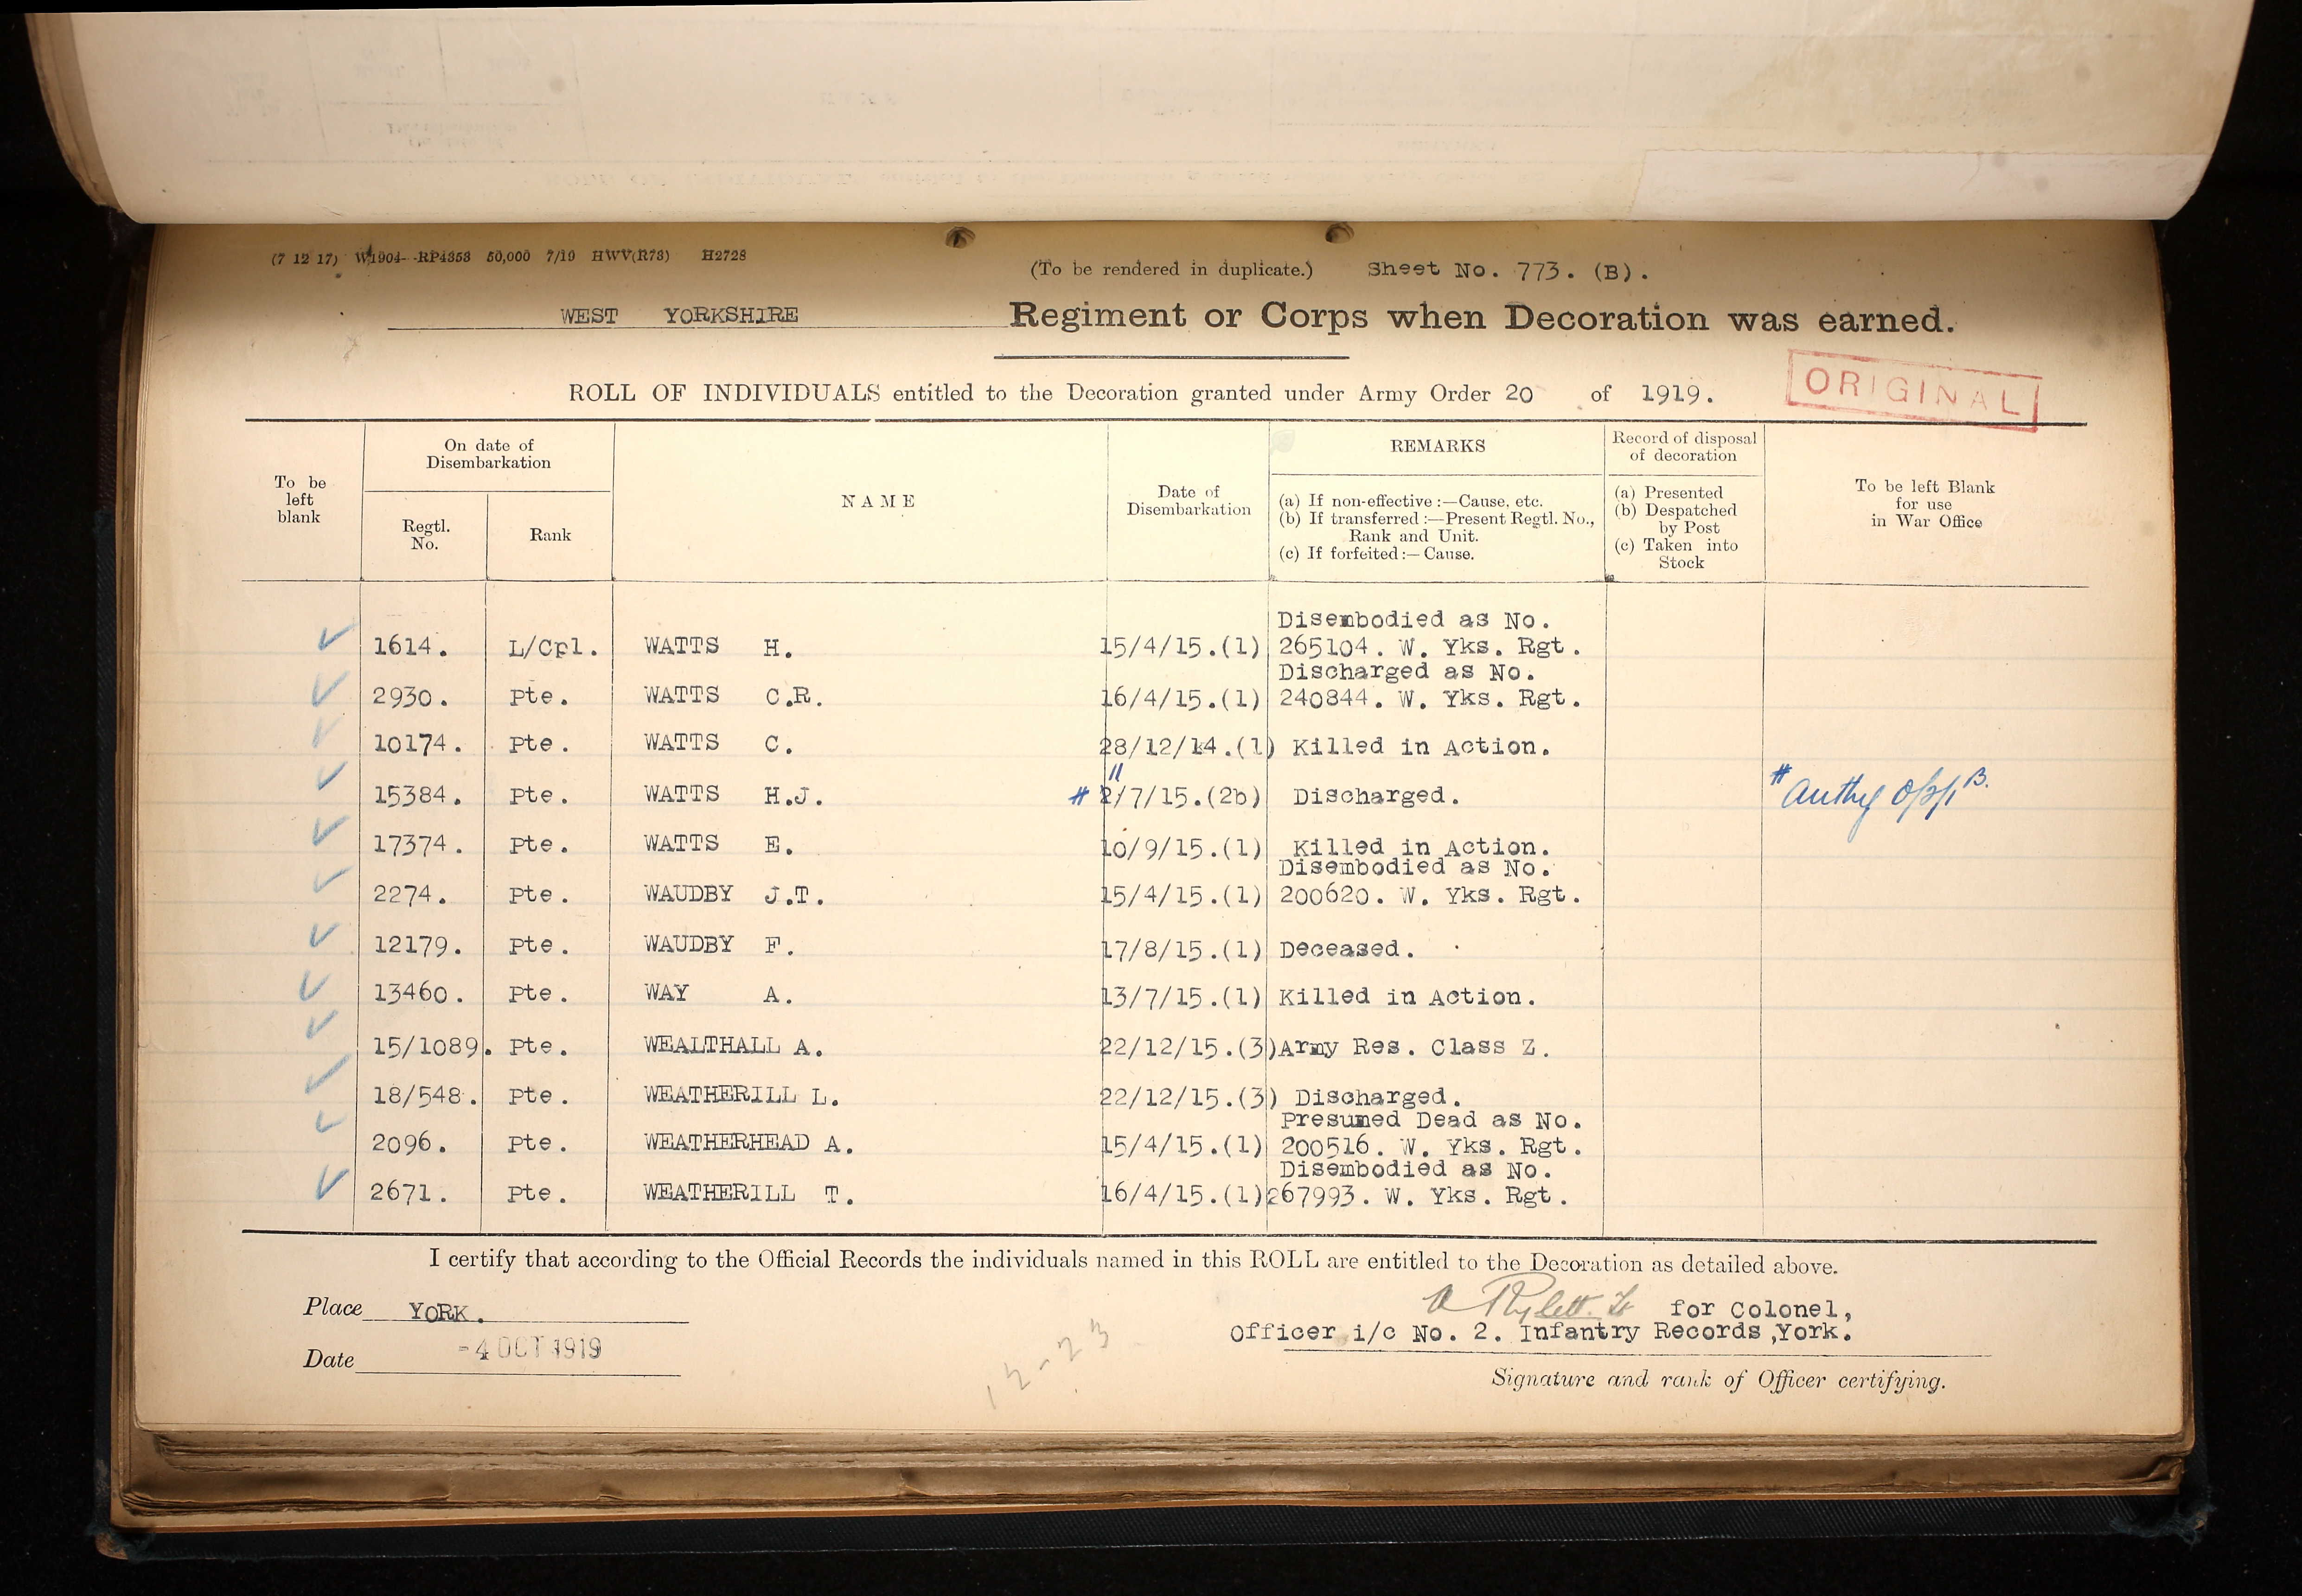 (7 12 17) W1904- -RP4353 50,000 7/19 HWV(R73) H2728
(To be rendered in duplicate.) Sheet No. 773. (B).
WEST YORKSHIRE Regiment or Corps when Decoration was earned.
ROLL OF INDIVIDUALS entitled to the Decoration granted under Army Order 20 of 1919.
ORIGINAL
To be left blank
On date of Disembarkation
Regtl. No.
Rank
NAME
Date of Disembarkation
REMARKS
(a) If non-effective :—Cause, etc.
(b) If transferred :—Present Regtl. No., Rank and Unit.
(c) If forfeited :—Cause.
Record of disposal of decoration
(a) Presented
(b) Despatched by Post
(c) Taken into Stock
To be left Blank for use in War Office
Disembodied as No.
1614. L/Cpl. WATTS H. 15/4/15.(1) 265104. W. Yks. Rgt.
Discharged as No.
2930. Pte. WATTS C.R. 16/4/15.(1) 240844. W. Yks. Rgt.
10174. Pte. WATTS C. 28/12/14.(1) Killed in Action.
15384. Pte. WATTS H.J. # 11 2/7/15.(2b) Discharged. # Authy B.
17374. Pte. WATTS E. 10/9/15.(1) Killed in Action.
Disembodied as No.
2274. Pte. WAUDBY J.T. 15/4/15.(1) 200620. W. Yks. Rgt.
12179. Pte. WAUDBY F. 17/8/15.(1) Deceased.
13460. Pte. WAY A. 13/7/15.(1) Killed in Action.
15/1089. Pte. WEALTHALL A. 22/12/15.(3) Army Res. Class Z.
18/548. Pte. WEATHERILL L. 22/12/15.(3) Discharged.
Presumed Dead as No.
2096. Pte. WEATHERHEAD A. 15/4/15.(1) 200516. W. Yks. Rgt.
Disembodied as No.
2671. Pte. WEATHERILL T. 16/4/15.(1) 267993. W. Yks. Rgt.
I certify that according to the Official Records the individuals named in this ROLL are entitled to the Decoration as detailed above.
Place YORK.
for Colonel,
Officer i/c No. 2. Infantry Records, York.
Date -4 OCT 1919
12-23
Signature and rank of Officer certifying.